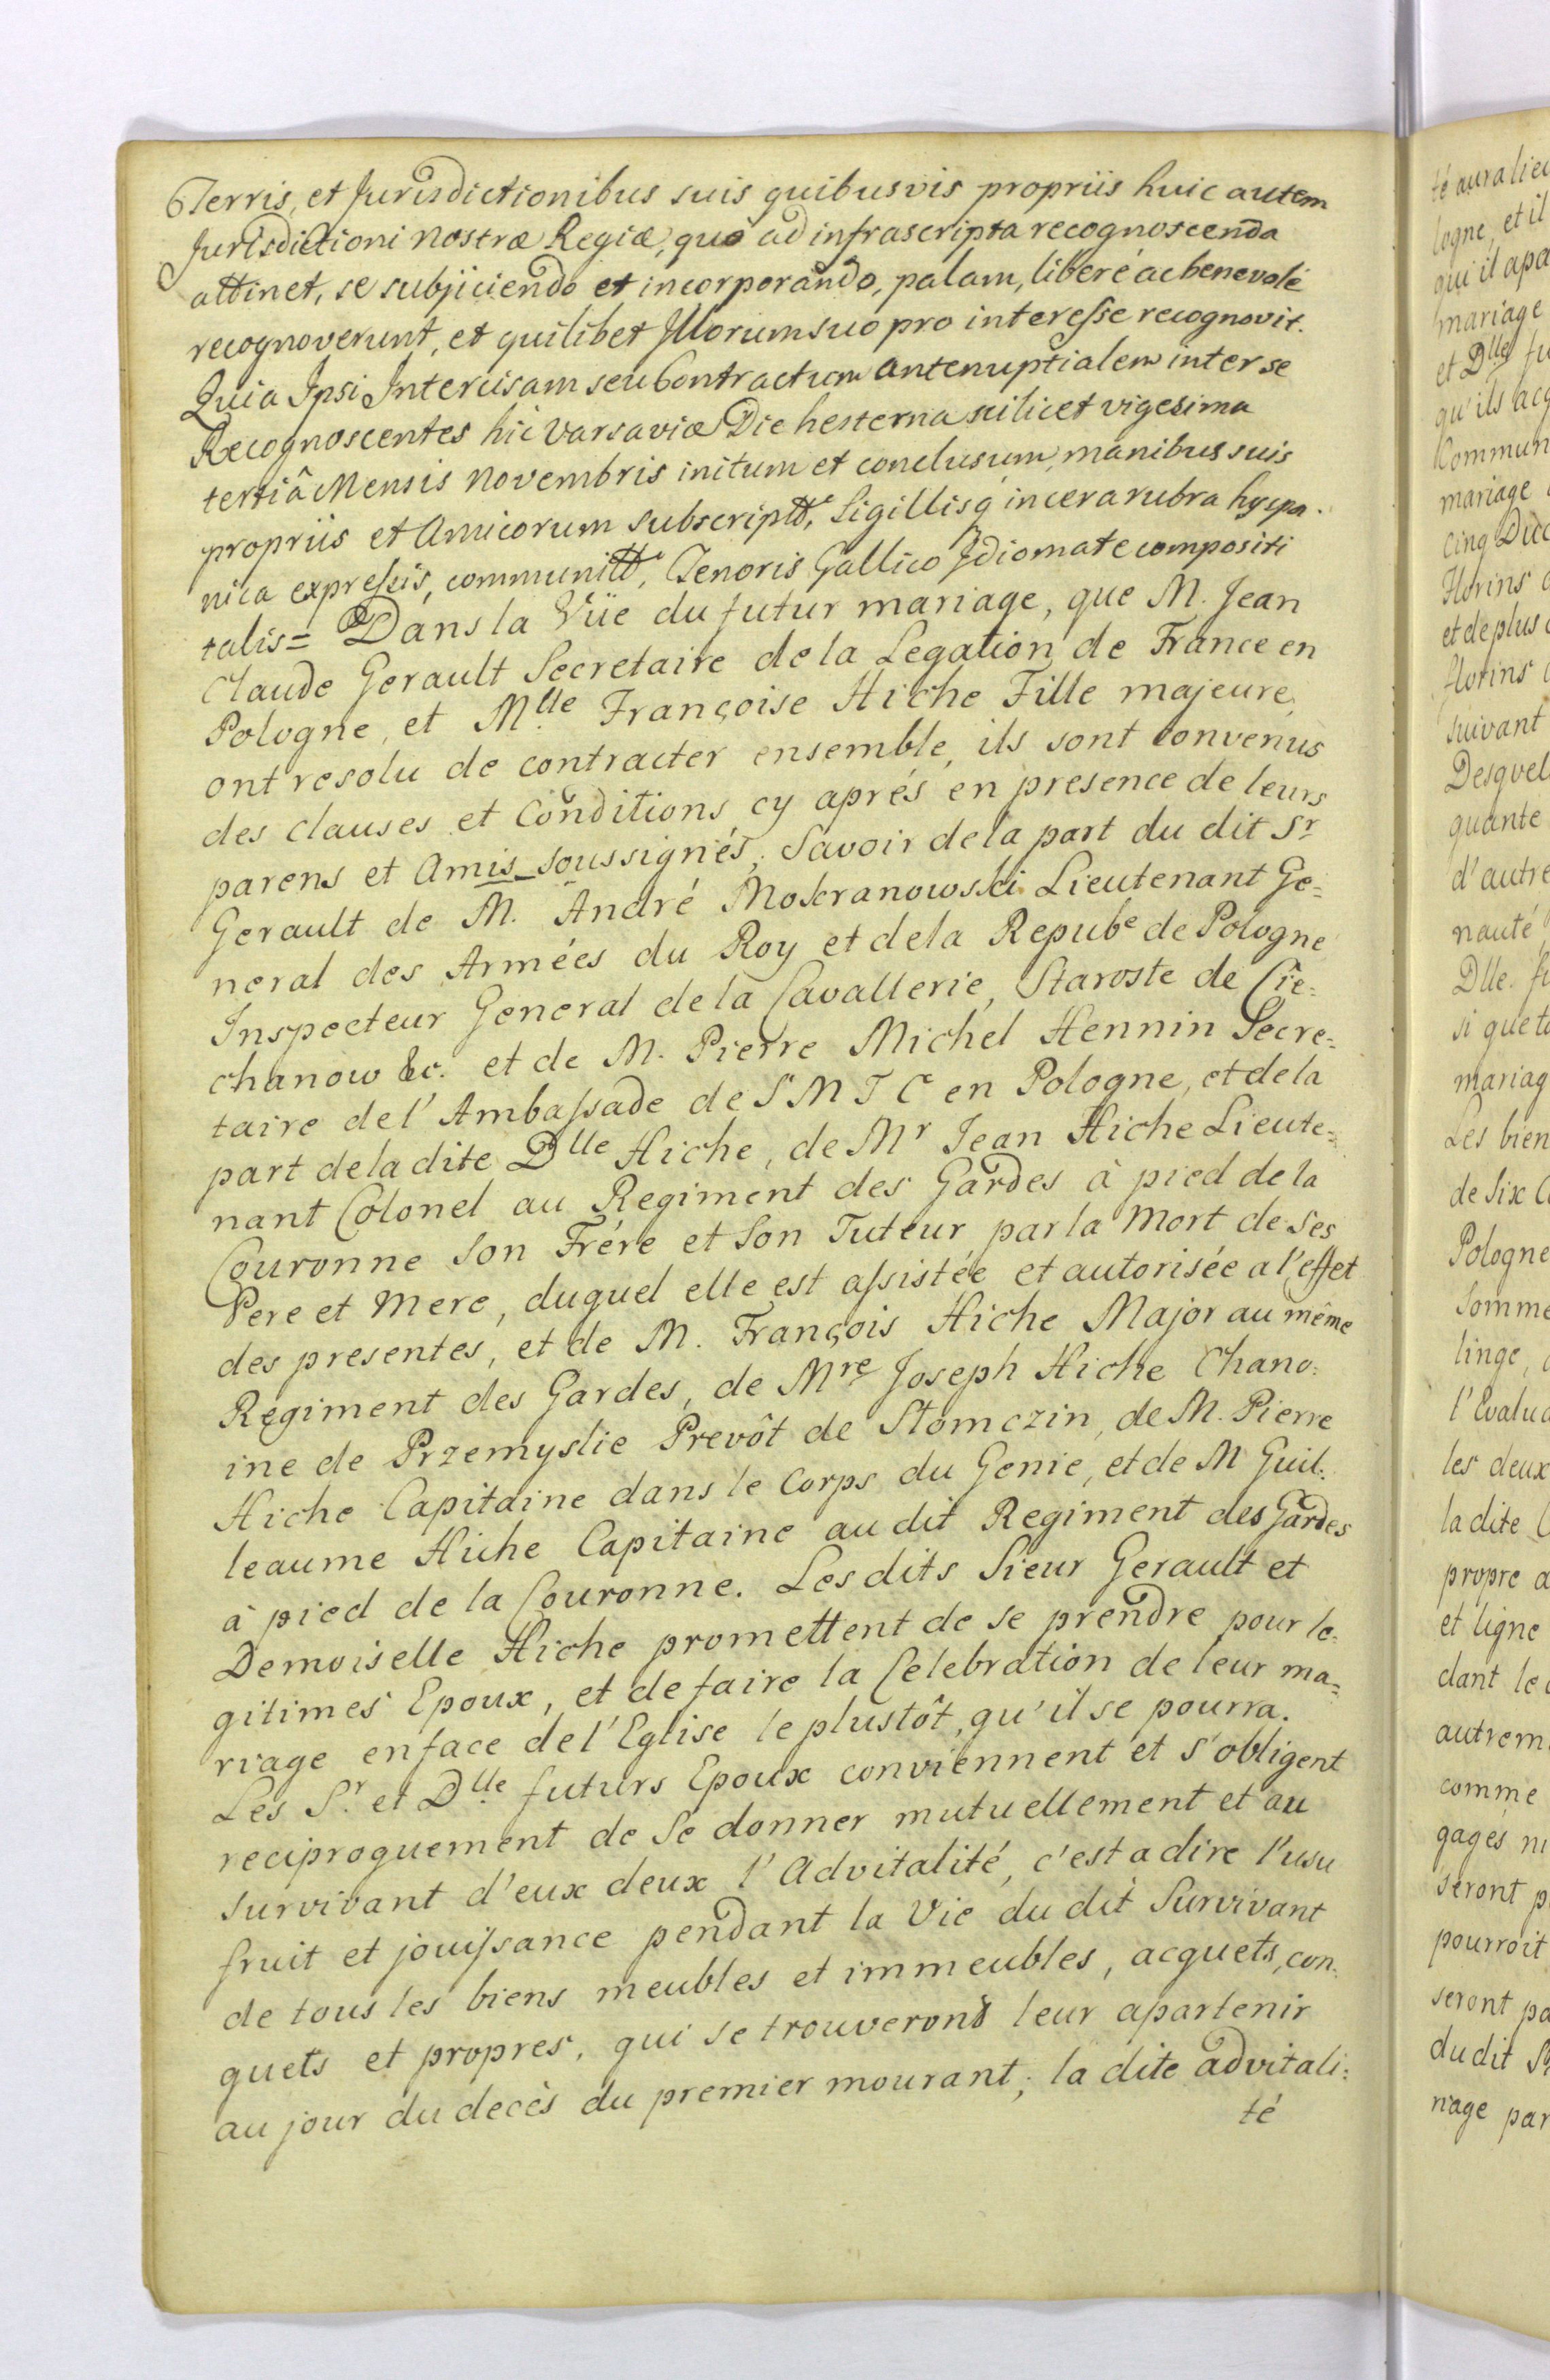 Terris, et Jurisdictionibus suis quibusvis propriis huic autem
Jurisdictioni Nostræ Regiæ, quo ad infrascripta recognoscenda
attinet, se subjiciendo et incorporando, palam, liberé ac benevolé
recognoverunt, et quilibet Illorum suo pro interesse recognovit.
Quia Ipsi Intercisam seu Contractum antenuptialem inter se
Recognoscentes hic Varsaviæ Die hesterna scilicet vigesima
tertiâ Mensis Novembris initum et conclusum, manibus suis
propriis et Amicorum subscriptt, Sigillisq in cera rubra hyspa.
nica expressis, communitt, Tenoris Gallico Idiomate compositi
talis = Dans la Vüe du futur mariage, que M. Jean
Claude Gerault Secretaire de la Legation de France en
Pologne, et Mlle Françoise Hiche Fille majeure,
ont resolu de contracter ensemble, ils sont convenus
des clauses et Conditions cy aprés en presence de leurs
parens et Amis soussignés, Savoir de la part du dit Sr
Gerault de M. André Mokranowski Lieutenant Ge=
neral des Armées du Roy et de la Repube de Pologne
Inspecteur General de la Cavallerie, Staroste de Cie=
chanow &c. et de M. Pierre Michel Hennin Secre=
taire de l'Ambassade de S M T C en Pologne, et de la
part de la dite Dlle Hiche, de Mr Jean Hiche Lieute=
nant Colonel au Regiment des Gardes à pied de la
Couronne Son Frére et Son Tuteur par la Mort de Ses
Pere et Mere, duquel elle est assistée et autorisée a l'effet
des presentes, et de M. François Hiche Major au même
Regiment des Gardes, de Mre Joseph Hiche Chano=
ine de Przemyslie Prevôt de Slomczin, de M. Pierre
Hiche Capitaine dans le Corps du Genie, et de M Guil=
leaume Hiche Capitaine au dit Regiment des Gardes
à pied de la Couronne. Les dits Sieur Gerault et
Demoiselle Hiche promettent de se prendre pour le=
gitimes Epoux, et de faire la Celebration de leur ma=
riage en face de l'Eglise le plustôt, qu'il se pourra.
Les Sr. et Dlle futurs Epoux conviennent et s'obligent
reciproquement de Se donner mutuellement et au
survivant d'eux deux l'Advitalité, c'est a dire l'usu
fruit et jouissance pendant la Vie du dit Survivant
de tous les biens meubles et immeubles, acquets, con=
quets et propres, qui se trouveront leur apartenir
au jour du decès du premier mourant; la dite advitali=
té
té aura lieu
logne, et il
qu'il apa
mariage
et Dlle fu
qu'ils acq
Commun
mariage
cinq
Florins
et de plus
florins
suivant
Desquel
quante
d'autre
nauté
Dlle. fu
si que
mariag
Les bien
de Six
Pologne
Somme
linge,
l'Evalua
les deux
la dite
propre a
et ligne
dant le
autrem
comme
gages ni
seront p
pourroit
seront pa
du dit
riage par